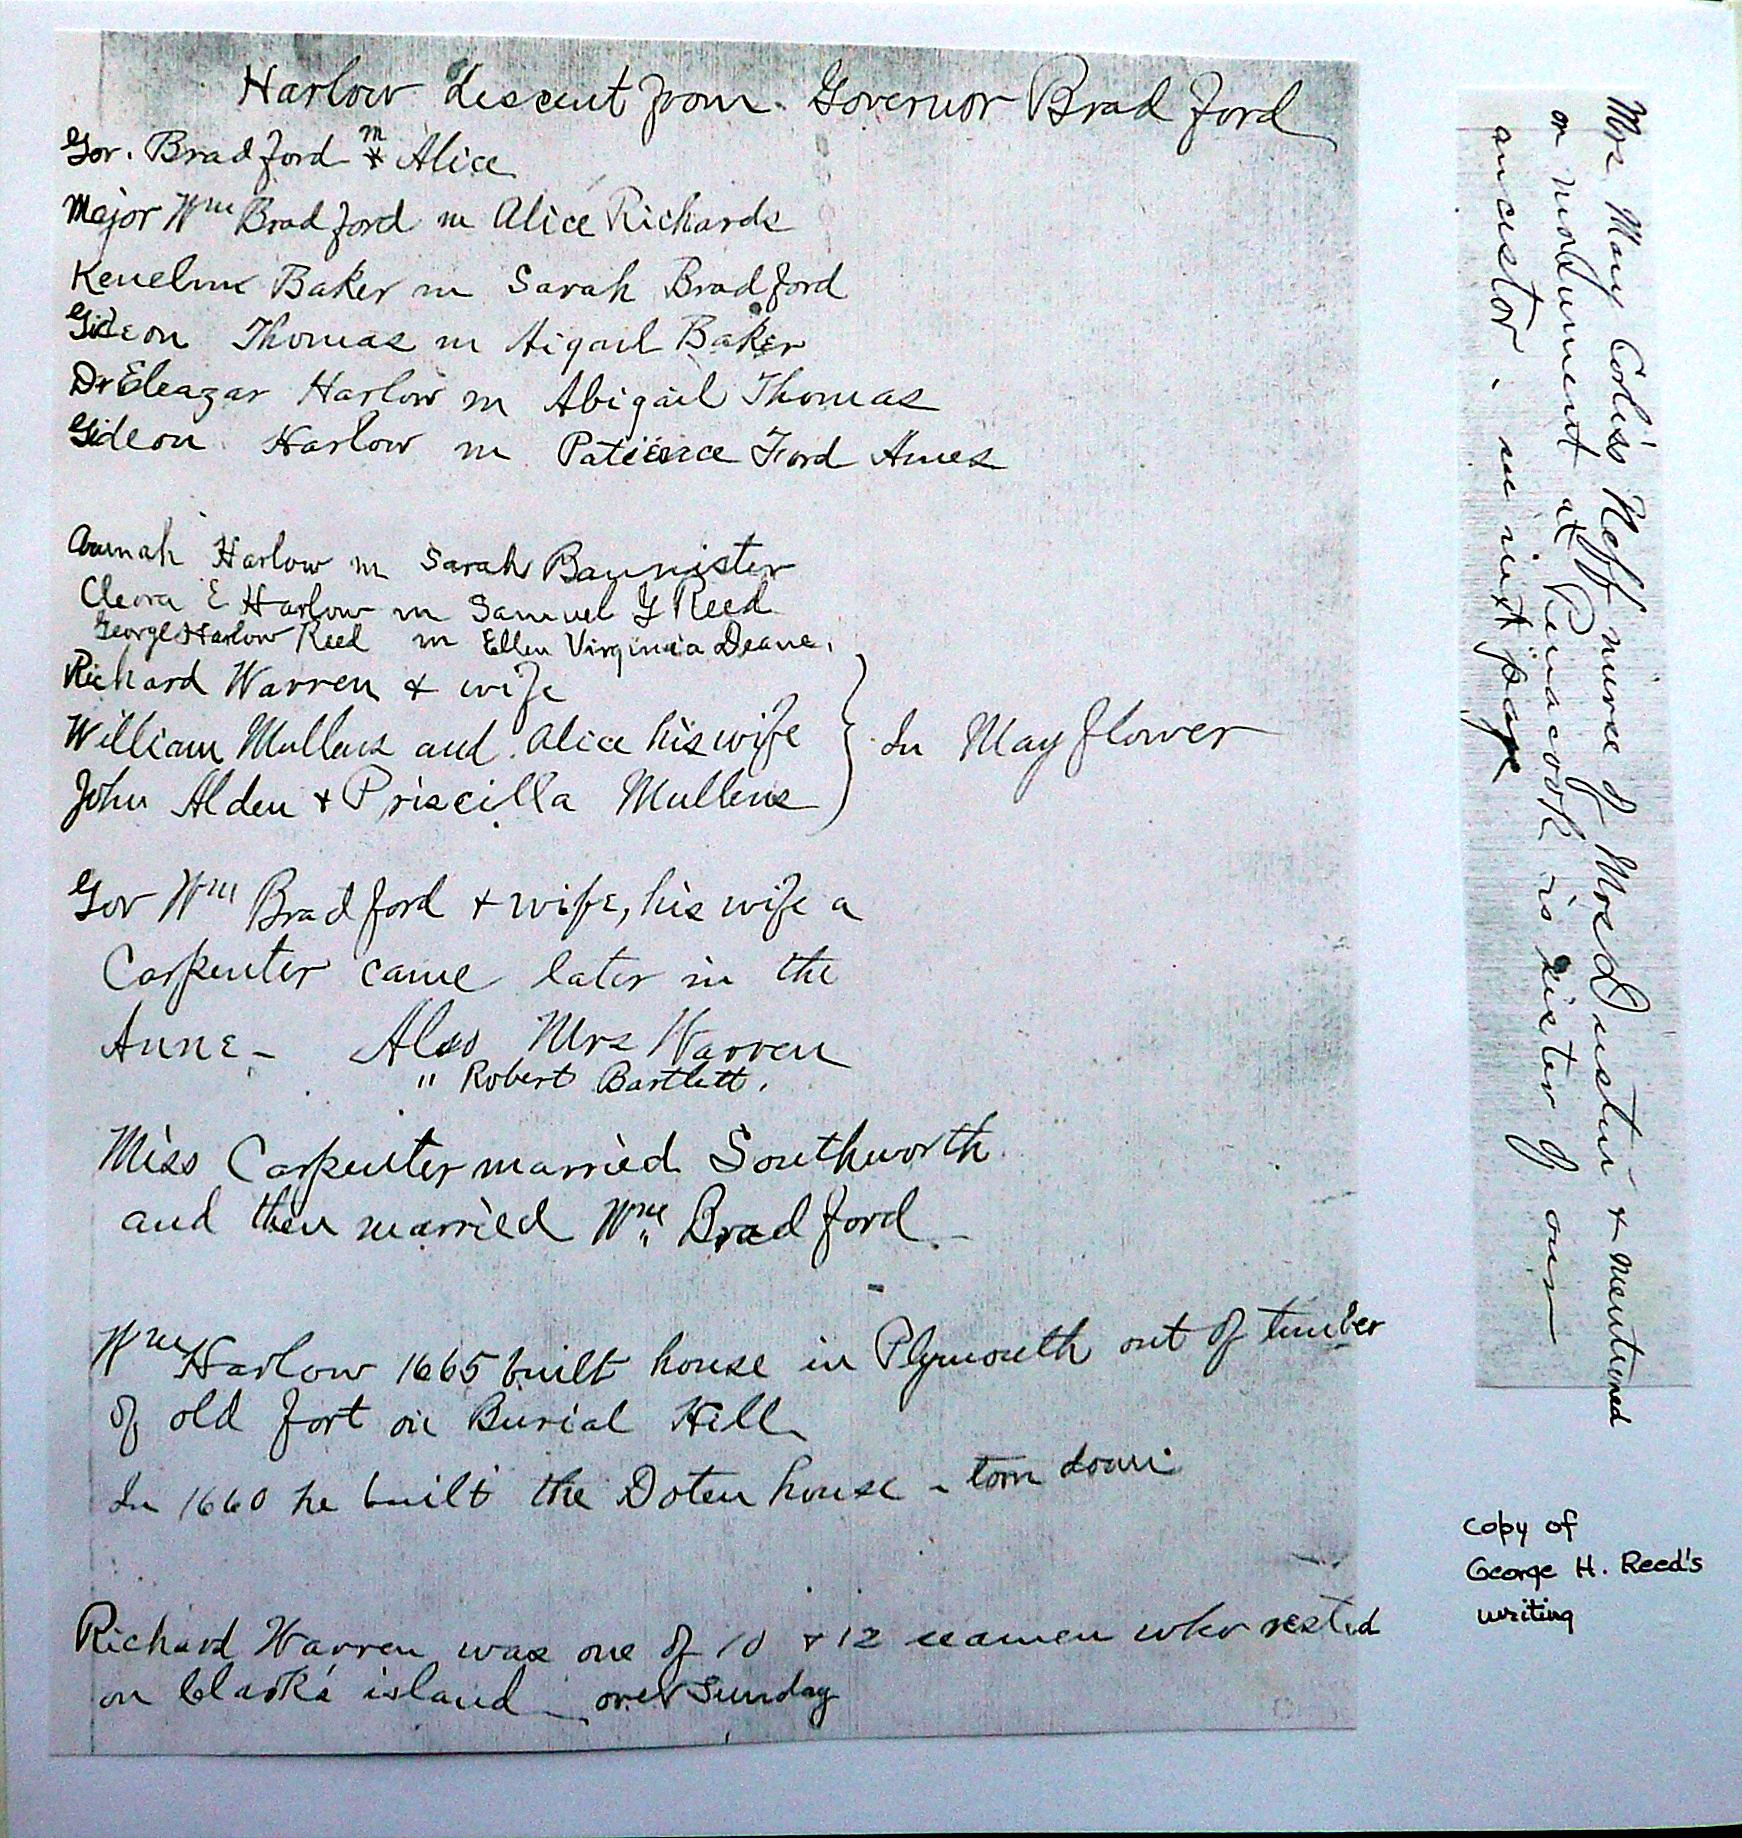 Harlow descent from Governor Bradford
Gov. Bradford m Alice
Major Wm Bradford m Alice Richards
Kenelm Baker m Sarah Bradford
Gideon Thomas m Aigail Baker
Dr Eleazar Harlow m Abigail Thomas
Gideon Harlow m Patience Ford Ames
Harlow m Sarah Bannister
Cleora E Harlow m Samuel G Reed
George Harlow Reed m Ellen Virginia Deane.
Richard Warren & wife
William Mullens and Alice his wife } In Mayflower
John Alden + Priscilla Mullens
Gov Wm Bradford + wife, his wife a
Carpenter came later in the
Anne - Also Mrs Warren
" Robert Bartlett.
Miss Carpenter married Southworth
and then married Wm Bradford
Wm Harlow 1665 built house in Plymouth out of timber
of old fort on Burial Hill
In 1660 he built the Doten house - torn down
Richard Warren was one of 10 + 12 seamen who rested
on Clark's island over Sunday
Mrs Mary Corliss Neff nurse of Mrs Dustin + mentioned
on monument at Penacook is sister of our
ancestor. in next page
copy of
George H. Reed's
writing